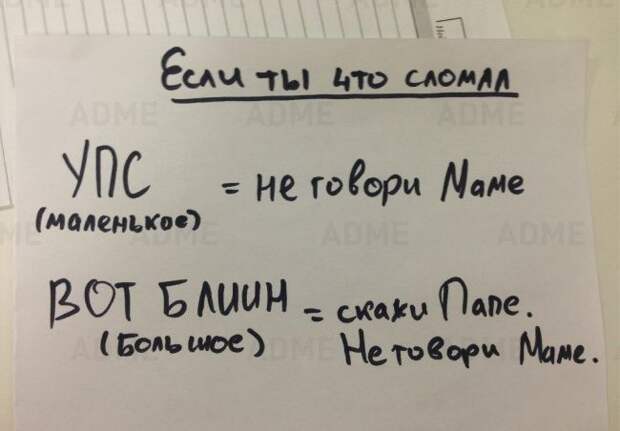 Если ты что сломал
УПС = не говори Маме
(маленькое)
ВОТ БЛИИН = скажи Папе.
(Большое) Не говори Маме.